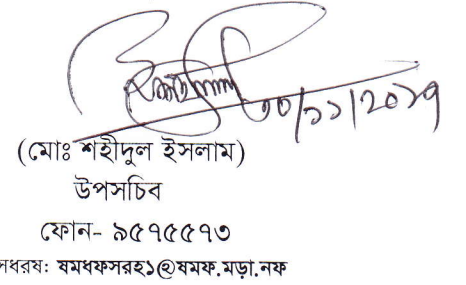 ৩০/১১/২০১৭
(মোঃ শহীদুল ইসলাম)
উপসচিব
ফোন- ৯৫৭৫৫৭৩
সধরষ: ষমধফসরহ১@ষমফ.মড়া.নফ